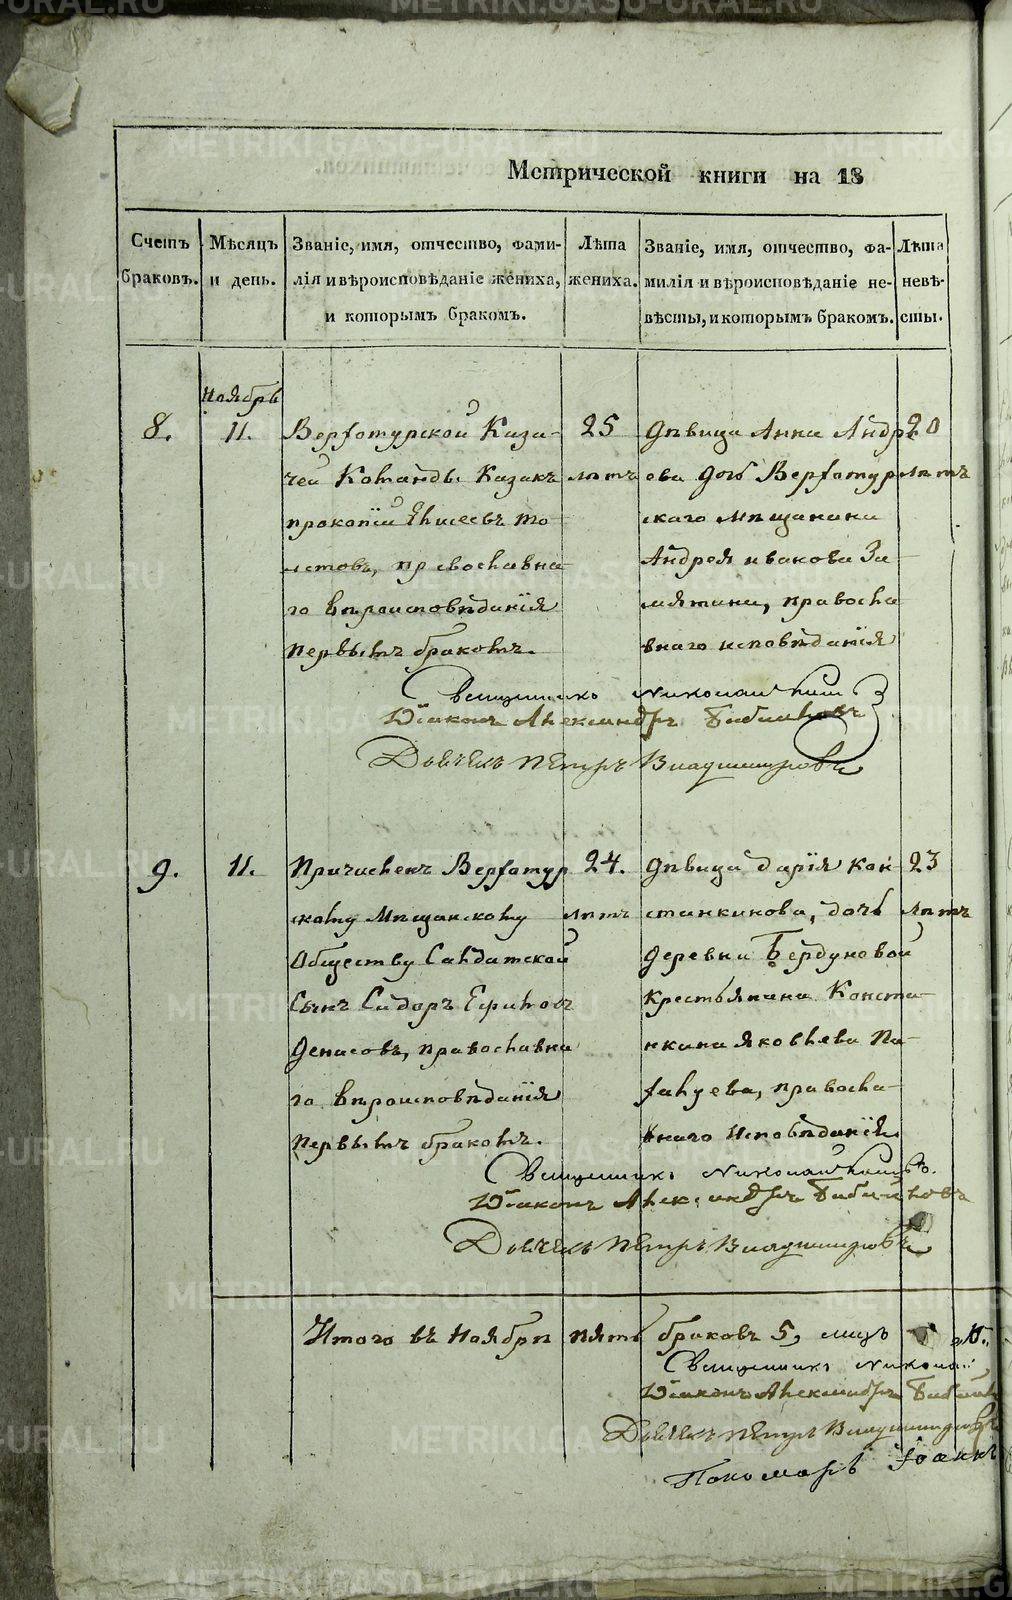 Метрической книги на 18
Счетъ браковъ.
Мѣсяцъ и день.
Званіе, имя, отчество, фами-
лія и вѣроисповѣданіе жениха,
и которымъ бракомъ.
Лѣта
жениха.
Званіе, имя, отчество, фа-
милія и вѣроисповѣданіе не-
вѣсты, и которымъ бракомъ.
Лѣта
невѣ-
сты.
Ноябрь
8.
11.
Верхотурской Каза-
чей Команды Казакъ
прокопій Елисеевъ То-
лстовъ, православна-
го вѣроисповѣданія
первымъ бракомъ.
25
лѣтъ
Дѣвица Анна Андре
ева дочь Верхотур
скаго мѣщанина
Андрея ивакова За-
мятина, правосла
внаго исповѣданія
20
лѣтъ
Священникъ Николай
Діаконъ Александръ
Дьячекъ Петръ Владимировъ
9.
11.
Причисленъ Верхотур
скому Мѣщанскому
Обществу Салдатской
Сынъ Сидоръ Ефимовъ
Денисовъ, православна
го вѣроисповѣданія
первымъ бракомъ.
24.
лѣтъ
Дѣвица дарія Кон
стантинова, дочь
деревни Бердуновой
крестьянина Конста-
нтина яковлева Па-
фнуева, правосла-
внаго Исповѣданія
23
лѣтъ
Священникъ Николай
Діаконъ Александръ
Дьячекъ Петръ Владимировъ
Итого въ Ноябрѣ пять браковъ 5, лицъ 10.
Священникъ Никола
Діаконъ Александръ
Дьячекъ Петръ Владимировъ
Пономарь Іоаннъ
METRIKI.GASO-URAL.RU